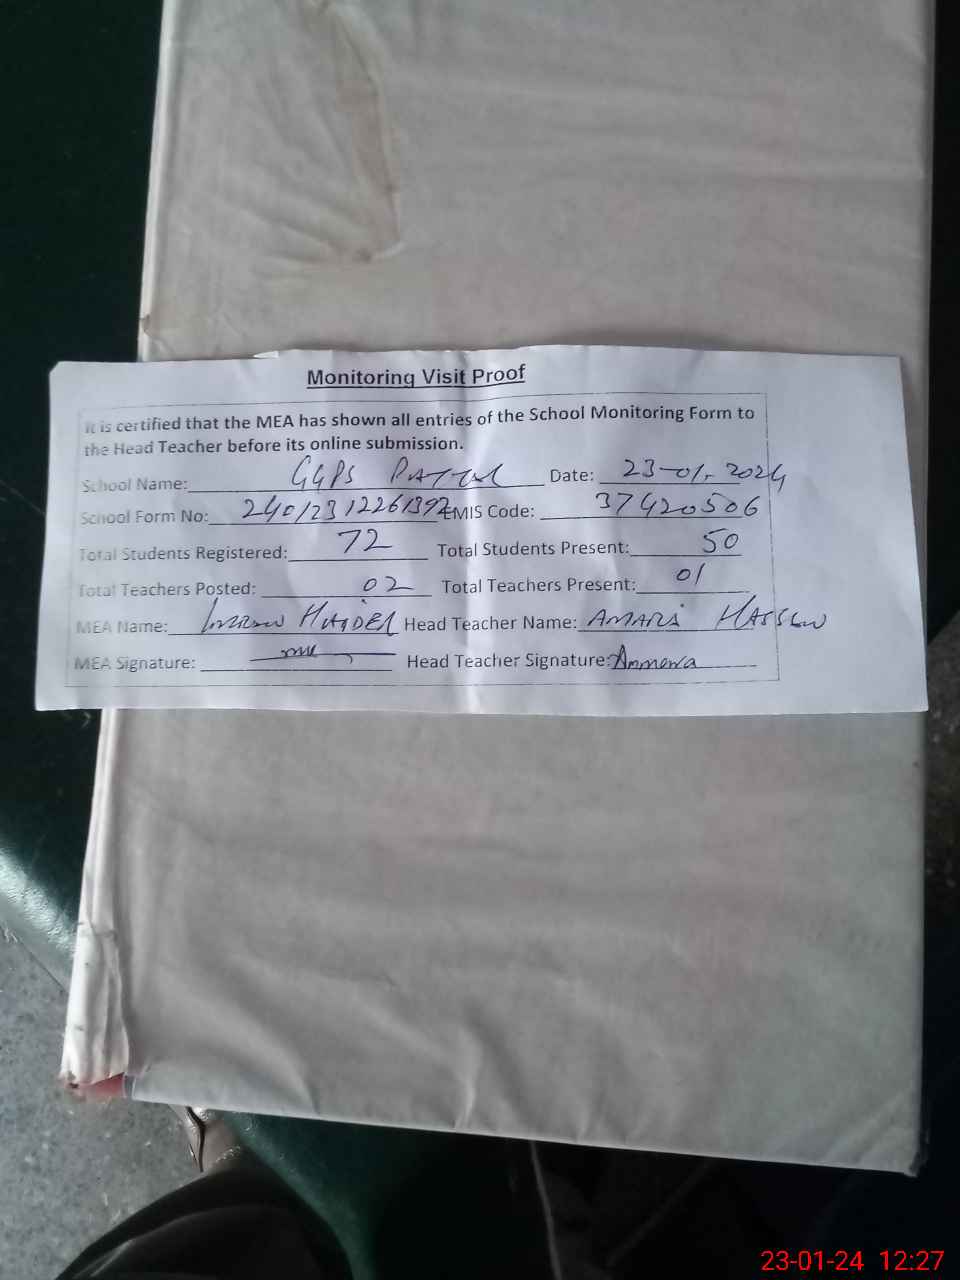 Monitoring Visit Proof
It is certified that the MEA has shown all entries of the School Monitoring Form to
the Head Teacher before its online submission.
School Name: GGPS Date: 23-01-2024
School Form No: EMIS Code: 37420506
Total Students Registered: 72 Total Students Present: 50
Total Teachers Posted: 02 Total Teachers Present: 01
MEA Name: Head Teacher Name:
MEA Signature: Head Teacher Signature:
23-01-24 12:27